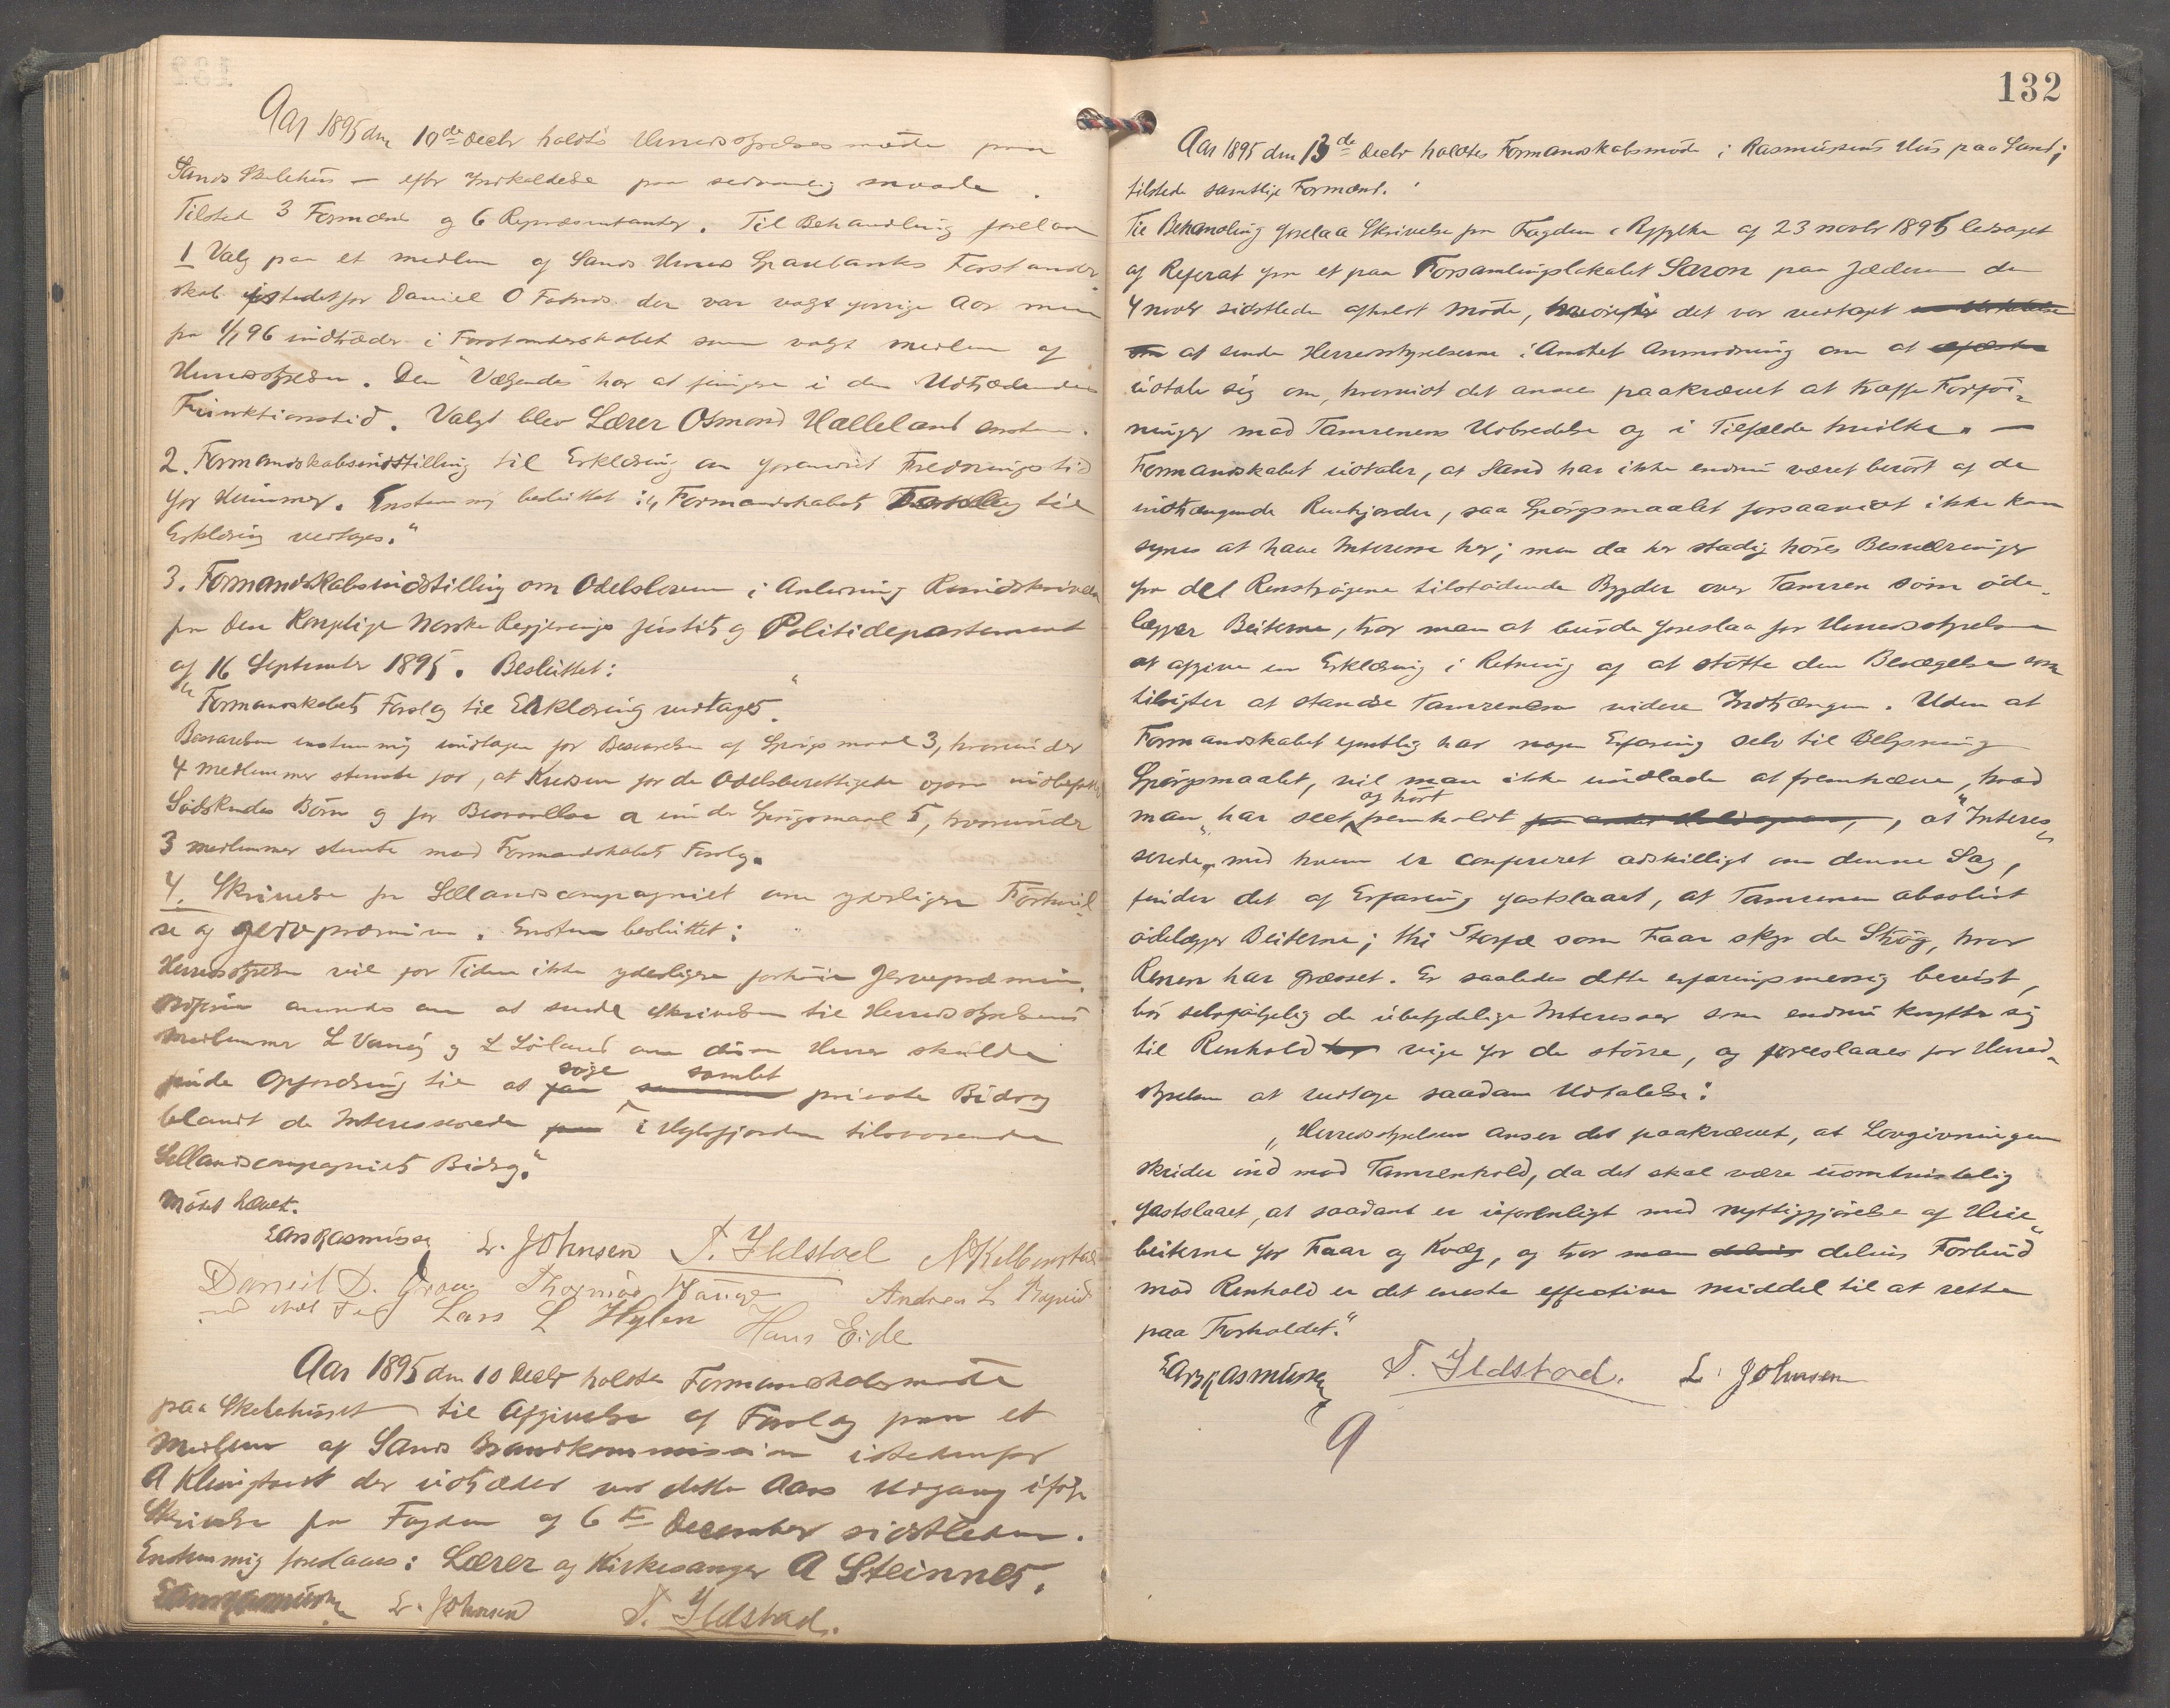 Aar 1895 den 10de Decbr holdtes Herredsstyrelsesmøde paa
Sands Skolehus – efter Indkaldelse paa sedvanlig maade.
Tilstede 3 Formænd og 6 Repræsentanter. Til Behandling forelaa
1 Valg paa et medlem af Sands Herreds Sparebanks Forstander-
skab istedetfor Daniel O der var valgt forrige Aar men
fra 1/1 96 indtræder i Forstanderskabet som valgt medlem af
Herredsstyrelsen. Den Vælgendes har at fungere i den Udtrædendes
Funktionstid. Valgt blev Lærer Osmond Halleland enstem.
2. Formandskabsindstilling til Erklæring om forandret Fredningstid
for Hummer. Enstemmig besluttet: "Formandskabets Forslag til
Erklæring vedtages."
3. Formandskabsindstilling om Odelsloven i Anledning Rundskrivelse
fra Den Kongelige Norske Regjerings Justits og Politidepartement
af 16 September 1895. Besluttet:
"Formandskabets Forslag til Erklæring vedtages".
Besvarelsen enstemmig undtagen for Besvarelsen af Spørgsmaal 3, hvorunder
4 medlemmer stemte for, at Kredsen for de Odelsberettigede ogsaa indbefatted
Sødskendes Børn og for Besvarelse a under Spørgsmaal 5, hvorunder
3 medlemmer stemte mod Formandskabets Forslag.
4. Skrivelse fra Sællandscompagniet om yderligere Forhøiel-
se af Jervpræmien. Enstem besluttet:
Herredsstyrelsen vil for Tiden ikke yderligere forhøie Jervepræmien.
Ordføreren anmodes om at sende Skrivelsen til Herredsstyrelsens
medlemmer L Vanvig og L Løland om disse Herrer skulde
finde Opfordring til at søge samlet private Bidrag
blandt de Interesserede i Hylsfjorden tilsvarende
Sællandscompagniets Bidrag."
Mødet hævet.
Lars Rasmussen L. Johnsen T. Ilstad
Daniel D. Thormod Hauge Andreas L
Lars L Hylen Hans Eide
Aar 1895 den 10 Decbr holdtes Formandskabsmøde
paa Skolehuset til Afgivelse af Forslag paa et
Medlem af Sands Brandkommission istedenfor
A Klungtvedt der udtræder ved dette Aars Udgang ifølge
Skrivelse fra Fogden af 6te December sidstleden.
Enstemmig foreslaaes: Lærer og Kirkesanger A Steinnes.
Lars Rasmussen L. Johnsen T. Ilstad.
132
Aar 1895 den 13de Decbr holdtes Formandskabsmøde i Rasmussens Hus paa Sand;
tilstede samtlige Formænd.
Til Behandling forelaa Skrivelse fra Fogden i Ryfylke af 23 novbr 1895 ledsaget
af Referat fra et paa Forsamlingslokalet Saron paa Jæderen den
4 novbr sidstleden afholdt Møde, hvori det var vedtaget
at sende Herredsstyrelserne i Amtet Anmodning om at
udtale sig om, hvorvidt det ansees paakrævet at træffe Forføi-
ninger mod Tamrenens Udbredelse og i Tilfælde hvilke. –
Formandskabet udtaler, at Sand har ikke endnu været berørt af de
indtrængende Renhjorder, saa Spørgsmaalet forsaavidt ikke kan
synes at have Interesse her; men da her stadig høres Besværinger
fra del Renstrøgene tilstødende Bygder over Tamren som øde-
lægger Beiterne, tror man at burde foreslaa for Herredsstyrelsen
at afgive en Erklæring i Retning af at støtte den Bevægelse som
tilsigter at standse Tamrenens videre Indtrængen. Uden at
Formandskabet egentlig har nogen Erfaring selv til Belysning
Spørgsmaalet, vil man ikke undlade at fremhæve, hvad
man har seet og hørt fremholdt, at "Interes-
serede", med hvem er confereret adskilligt om denne Sag,
finder det af Erfaring fastslaaet, at Tamrenen absolut
ødelægger Beiterne; thi Storfæ som Faar skyr de Strøg, hvor
Renen har græsset. Er saaledes dette erfaringsmessig bevist,
bør selvfølgelig de ubetydelige Interesser som endnu knytter sig
til Renhold vige for de større, og foreslaaes for Herred-
styrelsen at vedtage saadan Udtalelse:
"Herredsstyrelsen anser det paakrævet, at Lovgivningen
skrider ind mod Tamrenhold, da det skal være uomtvistelig
fastslaaet, at saadant er uforenligt med nyttiggjørelse af Heie-
beiterne for Faar og Kvæg, og tror man delvis Forbud
mod Renhold er det eneste effective middel til at rette
paa Forholdet."
Lars Rasmussen T. Ilstad. L. Johnsen